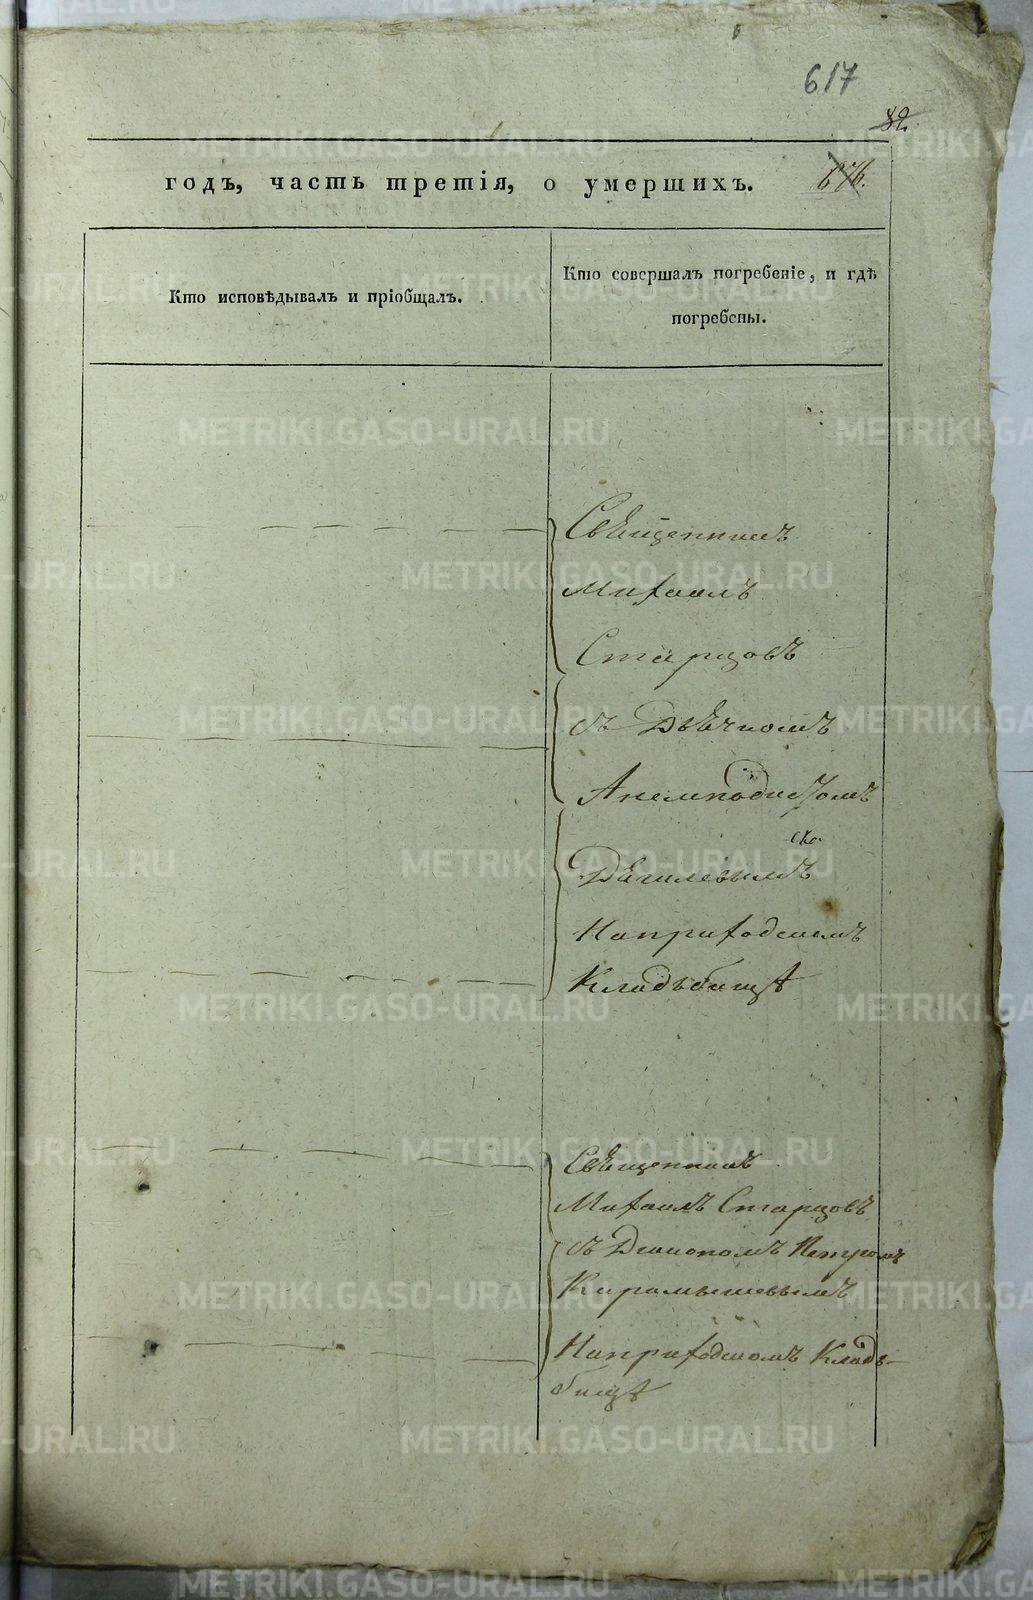 617
82.
годъ, часть третія, о умершихъ.
676.
Кто исповѣдывалъ и пріобщалъ.
Кто совершалъ погребеніе, и гдѣ
погребены.
Священникъ
Михаилъ
Старцовъ
съ Дьячкомъ
Анемподистомъ
Дягилевымъ
Наприходскомъ
Кладъбищѣ
Священникъ
Михаилъ Старцовъ
съ Дьякономъ Петромъ
Карамышевымъ
Наприходскомъ Кладъ-
бищѣ
METRIKI.GASO-URAL.RU